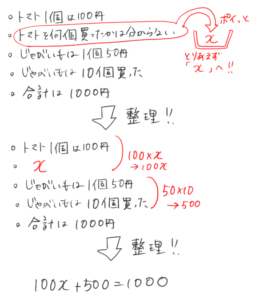 ○ トマト1個は100円
○ トマトを何個買ったかは分からない
ポイッと
x
とりあえず
「x」へ!!
○ じゃがいもは1個50円
○ じゃがいもは10個買った
○ 合計は1000円
整理!!
○ トマト1個は100円
○ x
100×x
→100x
○ じゃがいもは1個50円
○ じゃがいもは10個買った
50×10
→500
○ 合計は1000円
整理!!
100x+500=1000